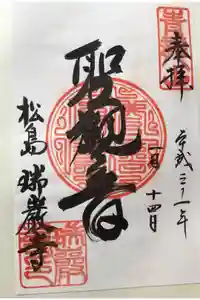 奉拝
平成三十一年
一月十四日
聖観音
松島 瑞巖寺